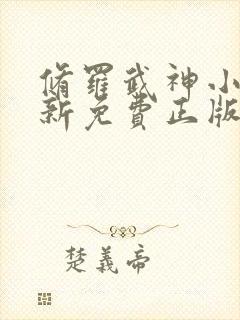 脩羅武神小
新免費正版
楚義帝